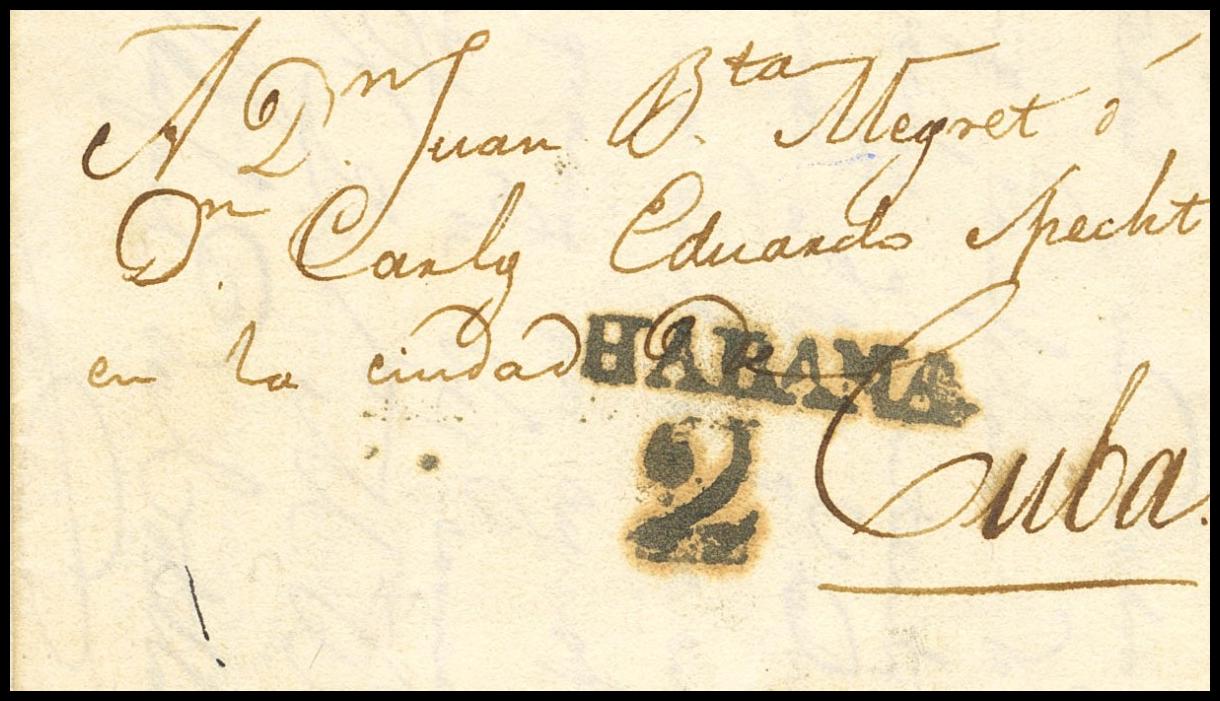 A Dn. Juan Bta. Megret ó
Dn. Carlos Eduardo Specht
en la ciudad De
HABANA
2
Cuba.